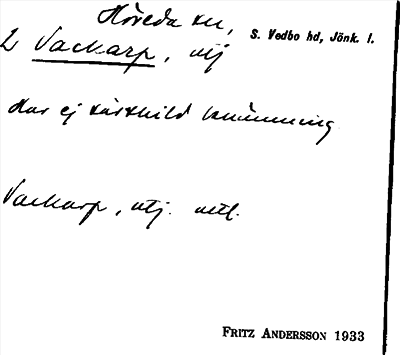 Höreda sn,
S. Vedbo hd, Jönk. l.
2 Vackarp, utj
Har ej särskild benämning
Vackarp, utj.
FRITZ ANDERSSON 1933